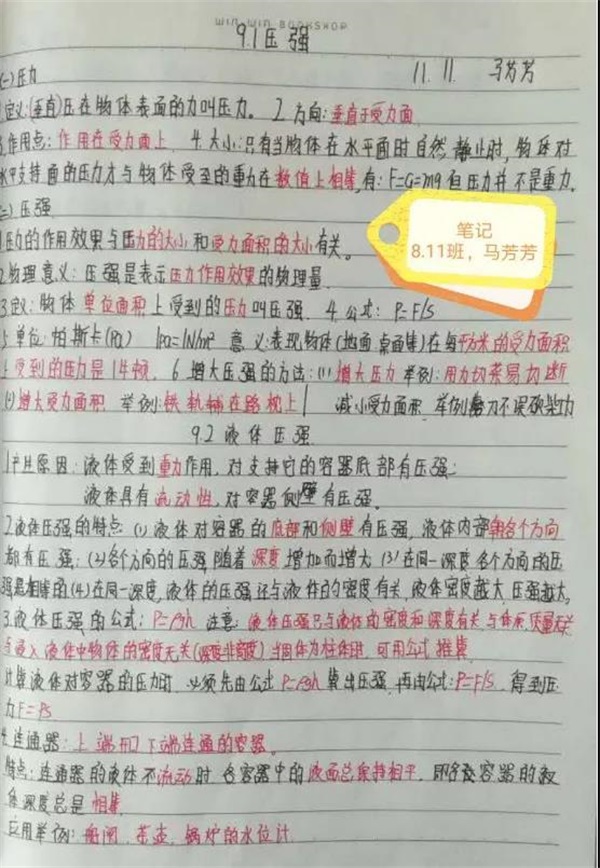 WIN WIN BOOKSHOP
9.1压强
(一)压力 11.11. 马芳芳
1.定义:(垂直)压在物体表面的力叫压力. 2.方向:垂直于受力面
3.作用点:作用在受力面上. 4.大小:只有当物体在水平面时自然静止时,物体对
水平支持面的压力才与物体受至的重力在数值上相等,有:F=G=mg但压力并不是重力.
(二)压强
1.压力的作用效果与压力的大小和受力面积的大小有关。
笔记
8.11班,马芳芳
2.物理意义:压强是表示压力作用效果的物理量.
3.定:物体单位面积上受到的压力叫压强. 4.公式:P=F/S
5.单位:帕斯卡(Pa) 1Pa=1N/m² 意义:表现物体(地面,桌面等)在每平方米的受力面积
上受到的压力是1牛顿. 6.增大压强的方法:(1)增大压力 举例:用力切菜易切断
增大受力面积 举例:铁轨铺在路枕上 减小受力面积 举例:磨刀不误砍柴功
9.2液体压强
1.产生原因:液体受到重力作用.对支持它的容器底部有压强;
液体具有流动性.对容器侧壁有压强。
2.液体压强的特点:(1)液体对容器的底部和侧壁有压强,液体内部朝各个方向
都有压强;(2)各个方向的压强随着深度增加而增大(3)在同一深度,各个方向的压
强是相等的(4)在同一深度,液体的压强还与液体的密度有关,液体密度越大,压强越大。
3.液体压强的公式:P=ρgh 注意:液体压强只与液体的密度和深度有关,与体积,质量无关
与浸入液体中物体的密度无关(深度非高度)当固体为柱体时,可用公式推算
计算液体对容器的压力时,必须先由公式P=ρgh算出压强,再由公式:P=F/S.得到压
力F=PS
4.连通器:上端开口下端连通的容器。
特点:连通器的液体不流动时,各容器中的液面总保持相平,即各容器的液
体深度总是相等.
应用举例:船闸、茶壶、锅炉的水位计.